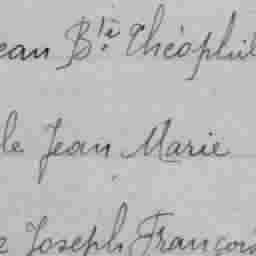 ean Bte Théophil
le Jean Marie
e Joseph François